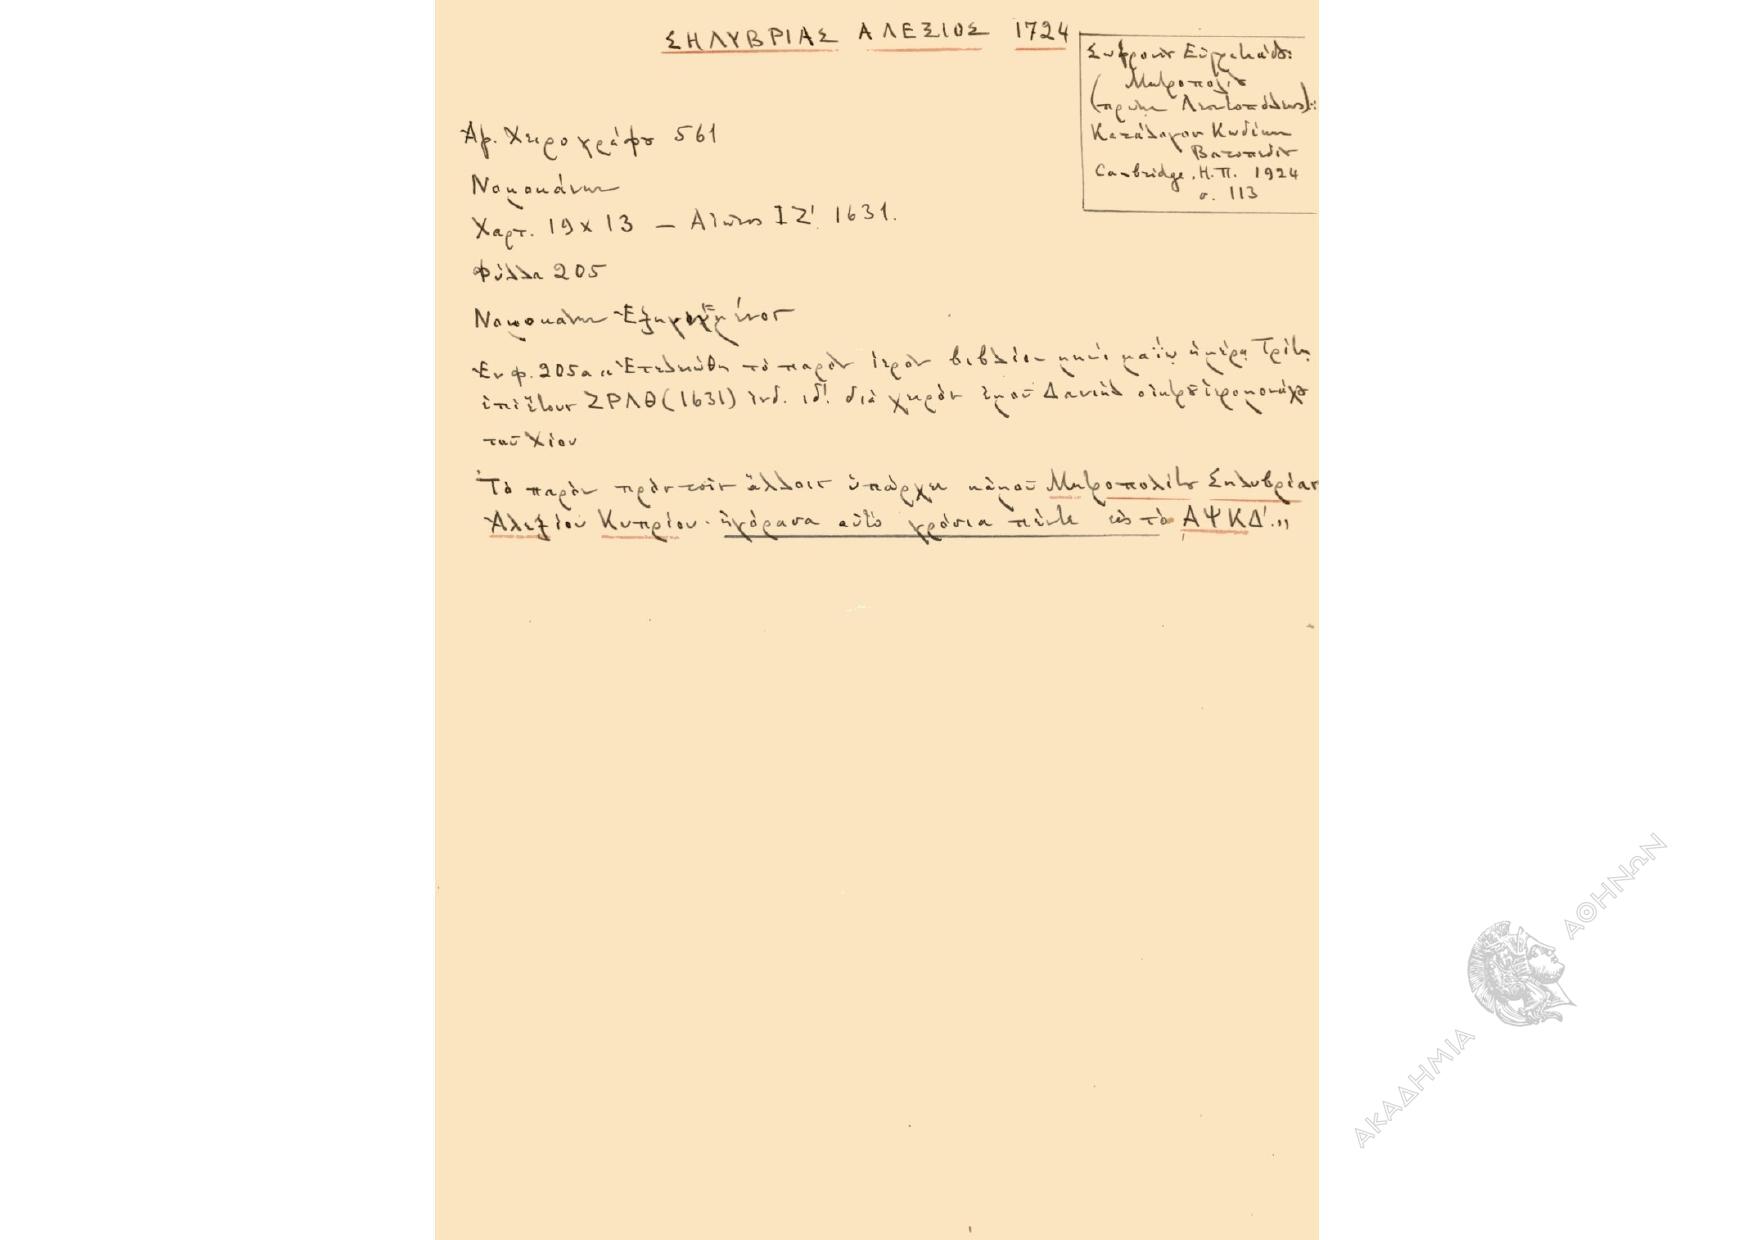 ΣΗΛΥΒΡΙΑΣ ΑΛΕΞΙΟΣ 1724
Σωφρονίου Εὐστρατιάδου
Μητροπολίτου
(πρώην Λεοντοπόλεως):
Κατάλογος Κωδίκων
Βατοπεδίου
Cambridge, Η.Π. 1924
σ. 113
Αρ. Χειρογράφου 561
Νομοκάνων
Χαρτ. 19 x 13 – Αἰῶνος ΙΖ' 1631.
Φύλλα 205
Νομοκάνων Ἐξηγημένος
Ἐν φ. 205α "Ἐτελειώθη τὸ παρὸν ἱερὸν βιβλίον μηνὶ μαΐῳ ἡμέρᾳ Τρίτῃ
ἐπὶ ἔτους ΖΡΛΘ (1631) ἰνδ. ιδ'. διὰ χειρὸς ἐμοῦ Δανιὴλ ἱερομονάχου
τοῦ Χίου
Τὸ παρὸν πρὸς τοῖς ἄλλοις ὑπάρχει κἀμοῦ Μητροπολίτου Σηλυβρίας
Ἀλεξίου Κυπρίου. ἠγόρασα αὐτὸ γρόσια πέντε εἰς τὸ ΑΨΚΔ'.,,
ΑΚΑΔΗΜΙΑ ΑΘΗΝΩΝ